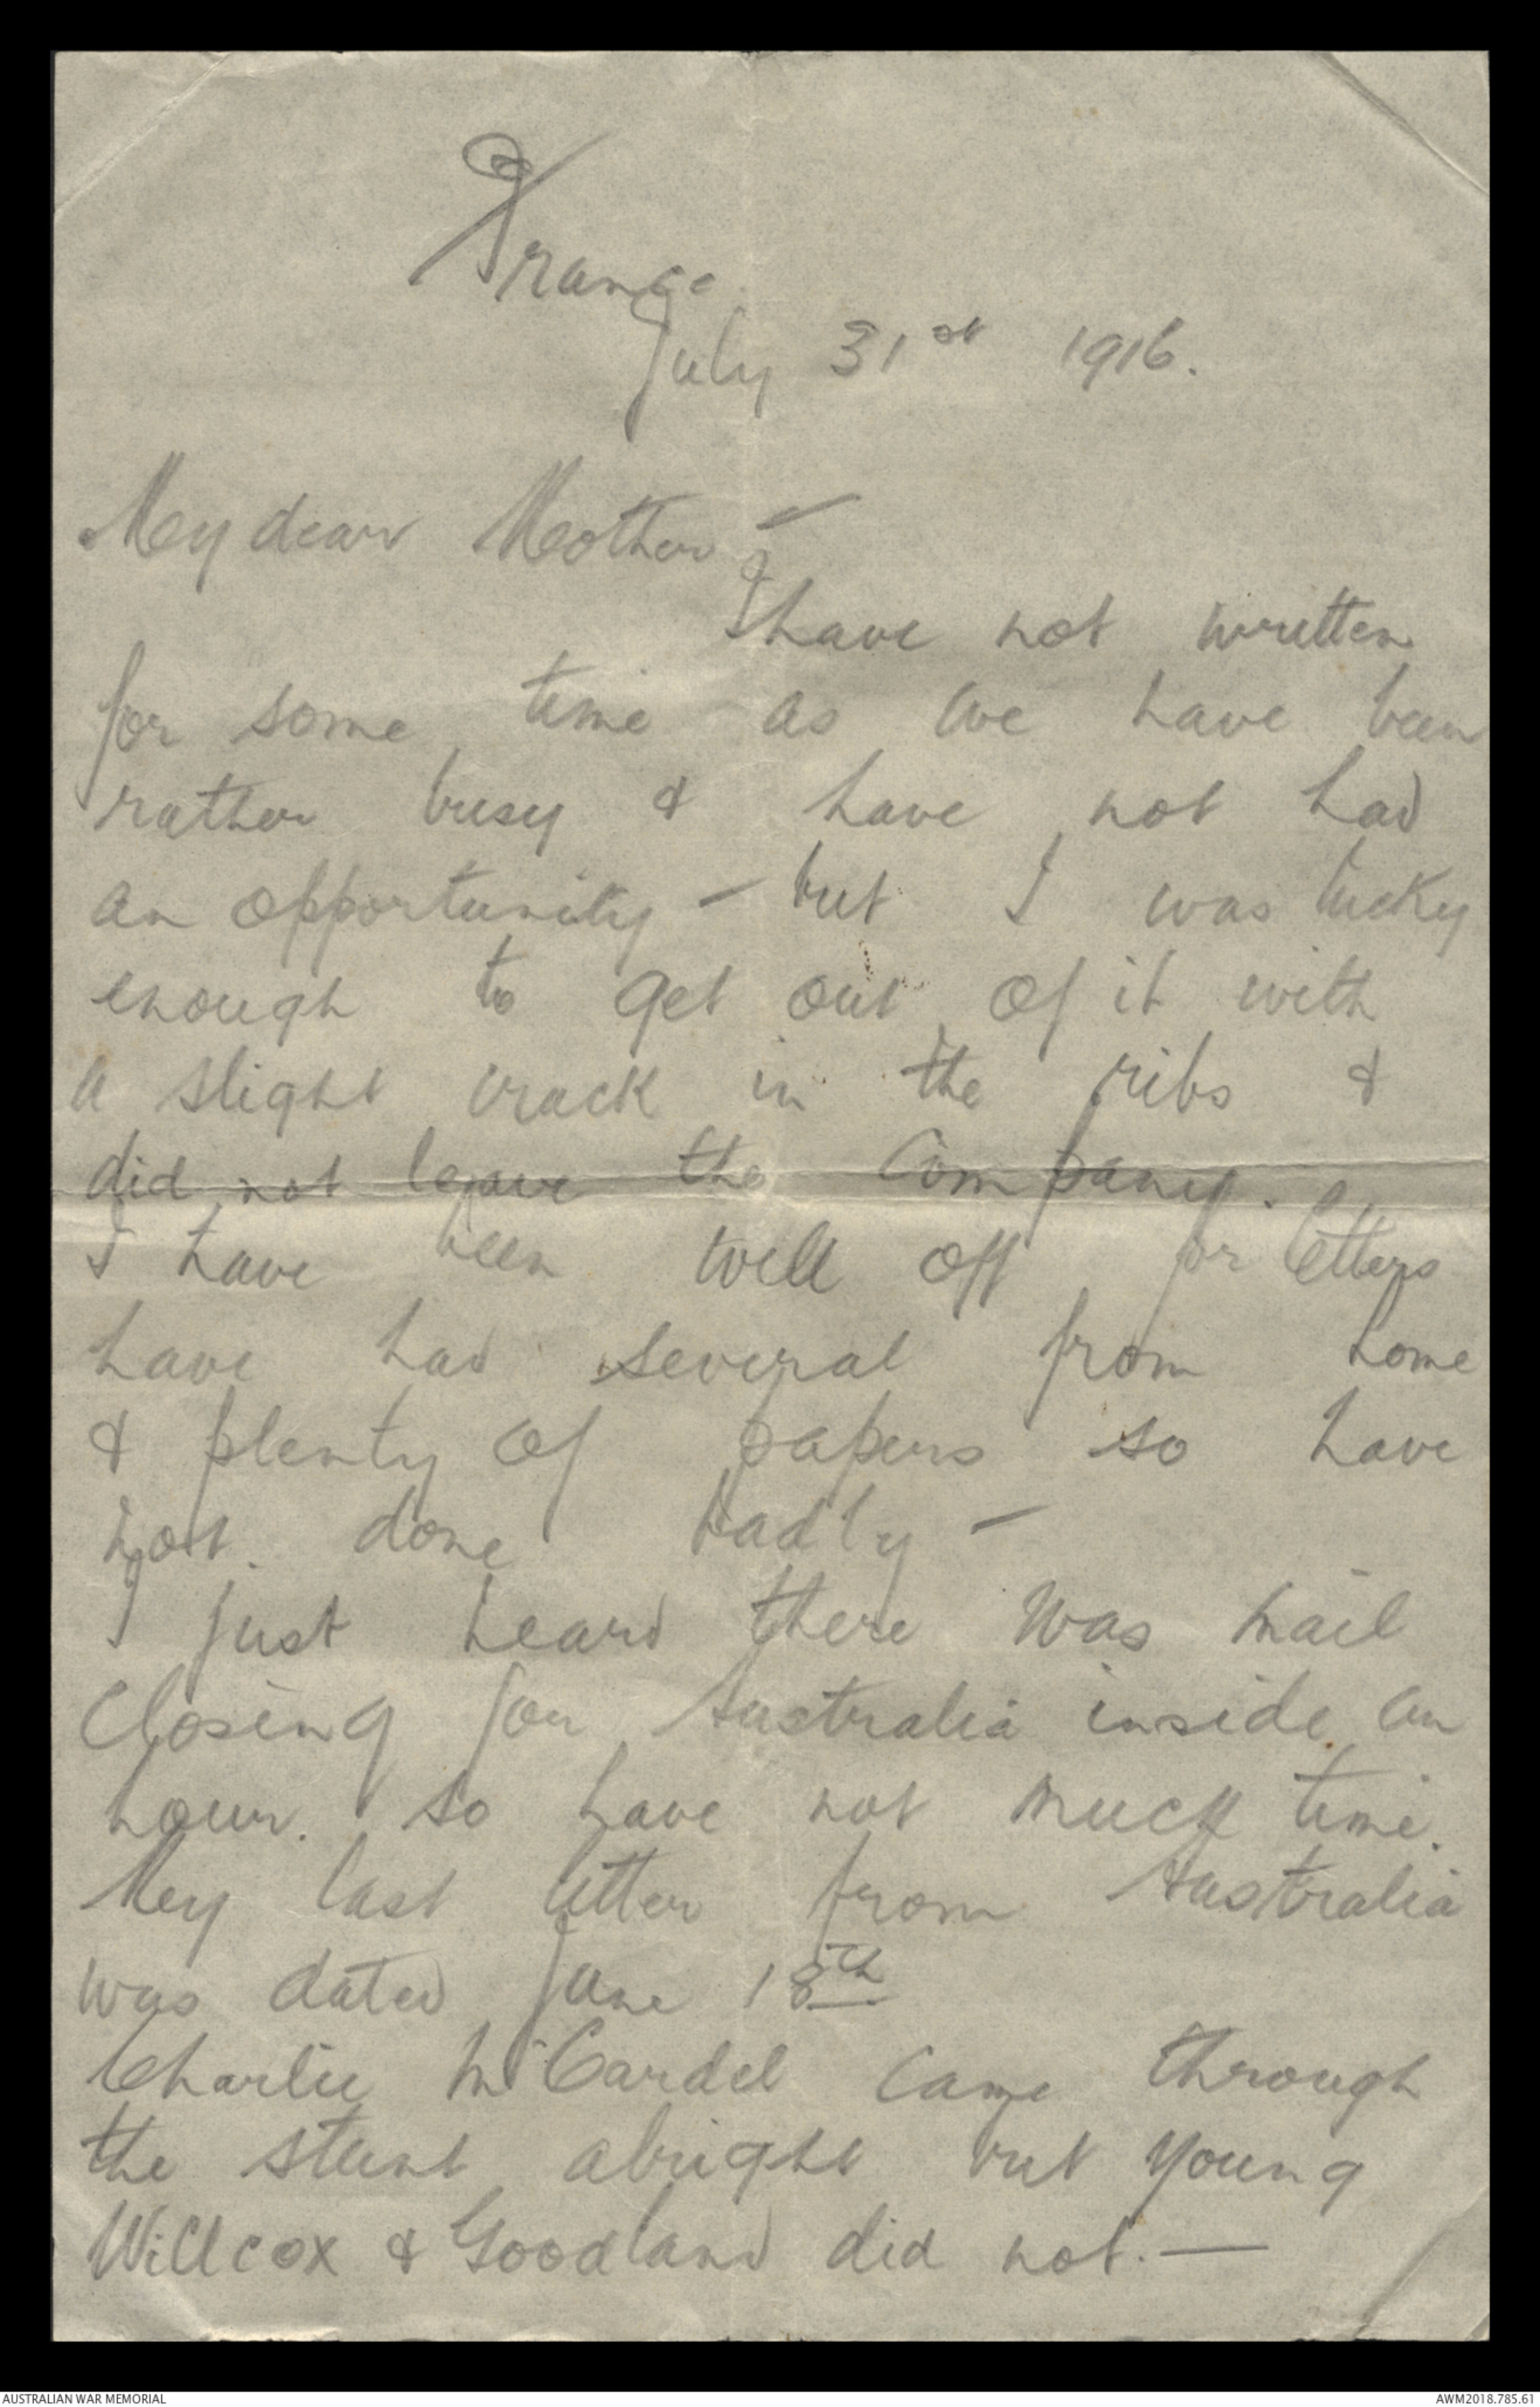 France
July 31st 1916.
My dear Mother —
I have not written
for some time as we have been
rather busy & have not had
an opportunity — but I was lucky
enough to get out of it with
a slight crack in the ribs &
did not leave the Company.
I have been well off for letters
have had several from home
& plenty of papers so have
not. done badly —
I just heard there was mail
closing for Australia inside an
hour. so have not much time.
My last letter from Australia
was dated June 18th
Charlie McCardel came through
the stunt alright but young
Willcox & Goodland did not. —
AUSTRALIAN WAR MEMORIAL
AWM2018.785.61